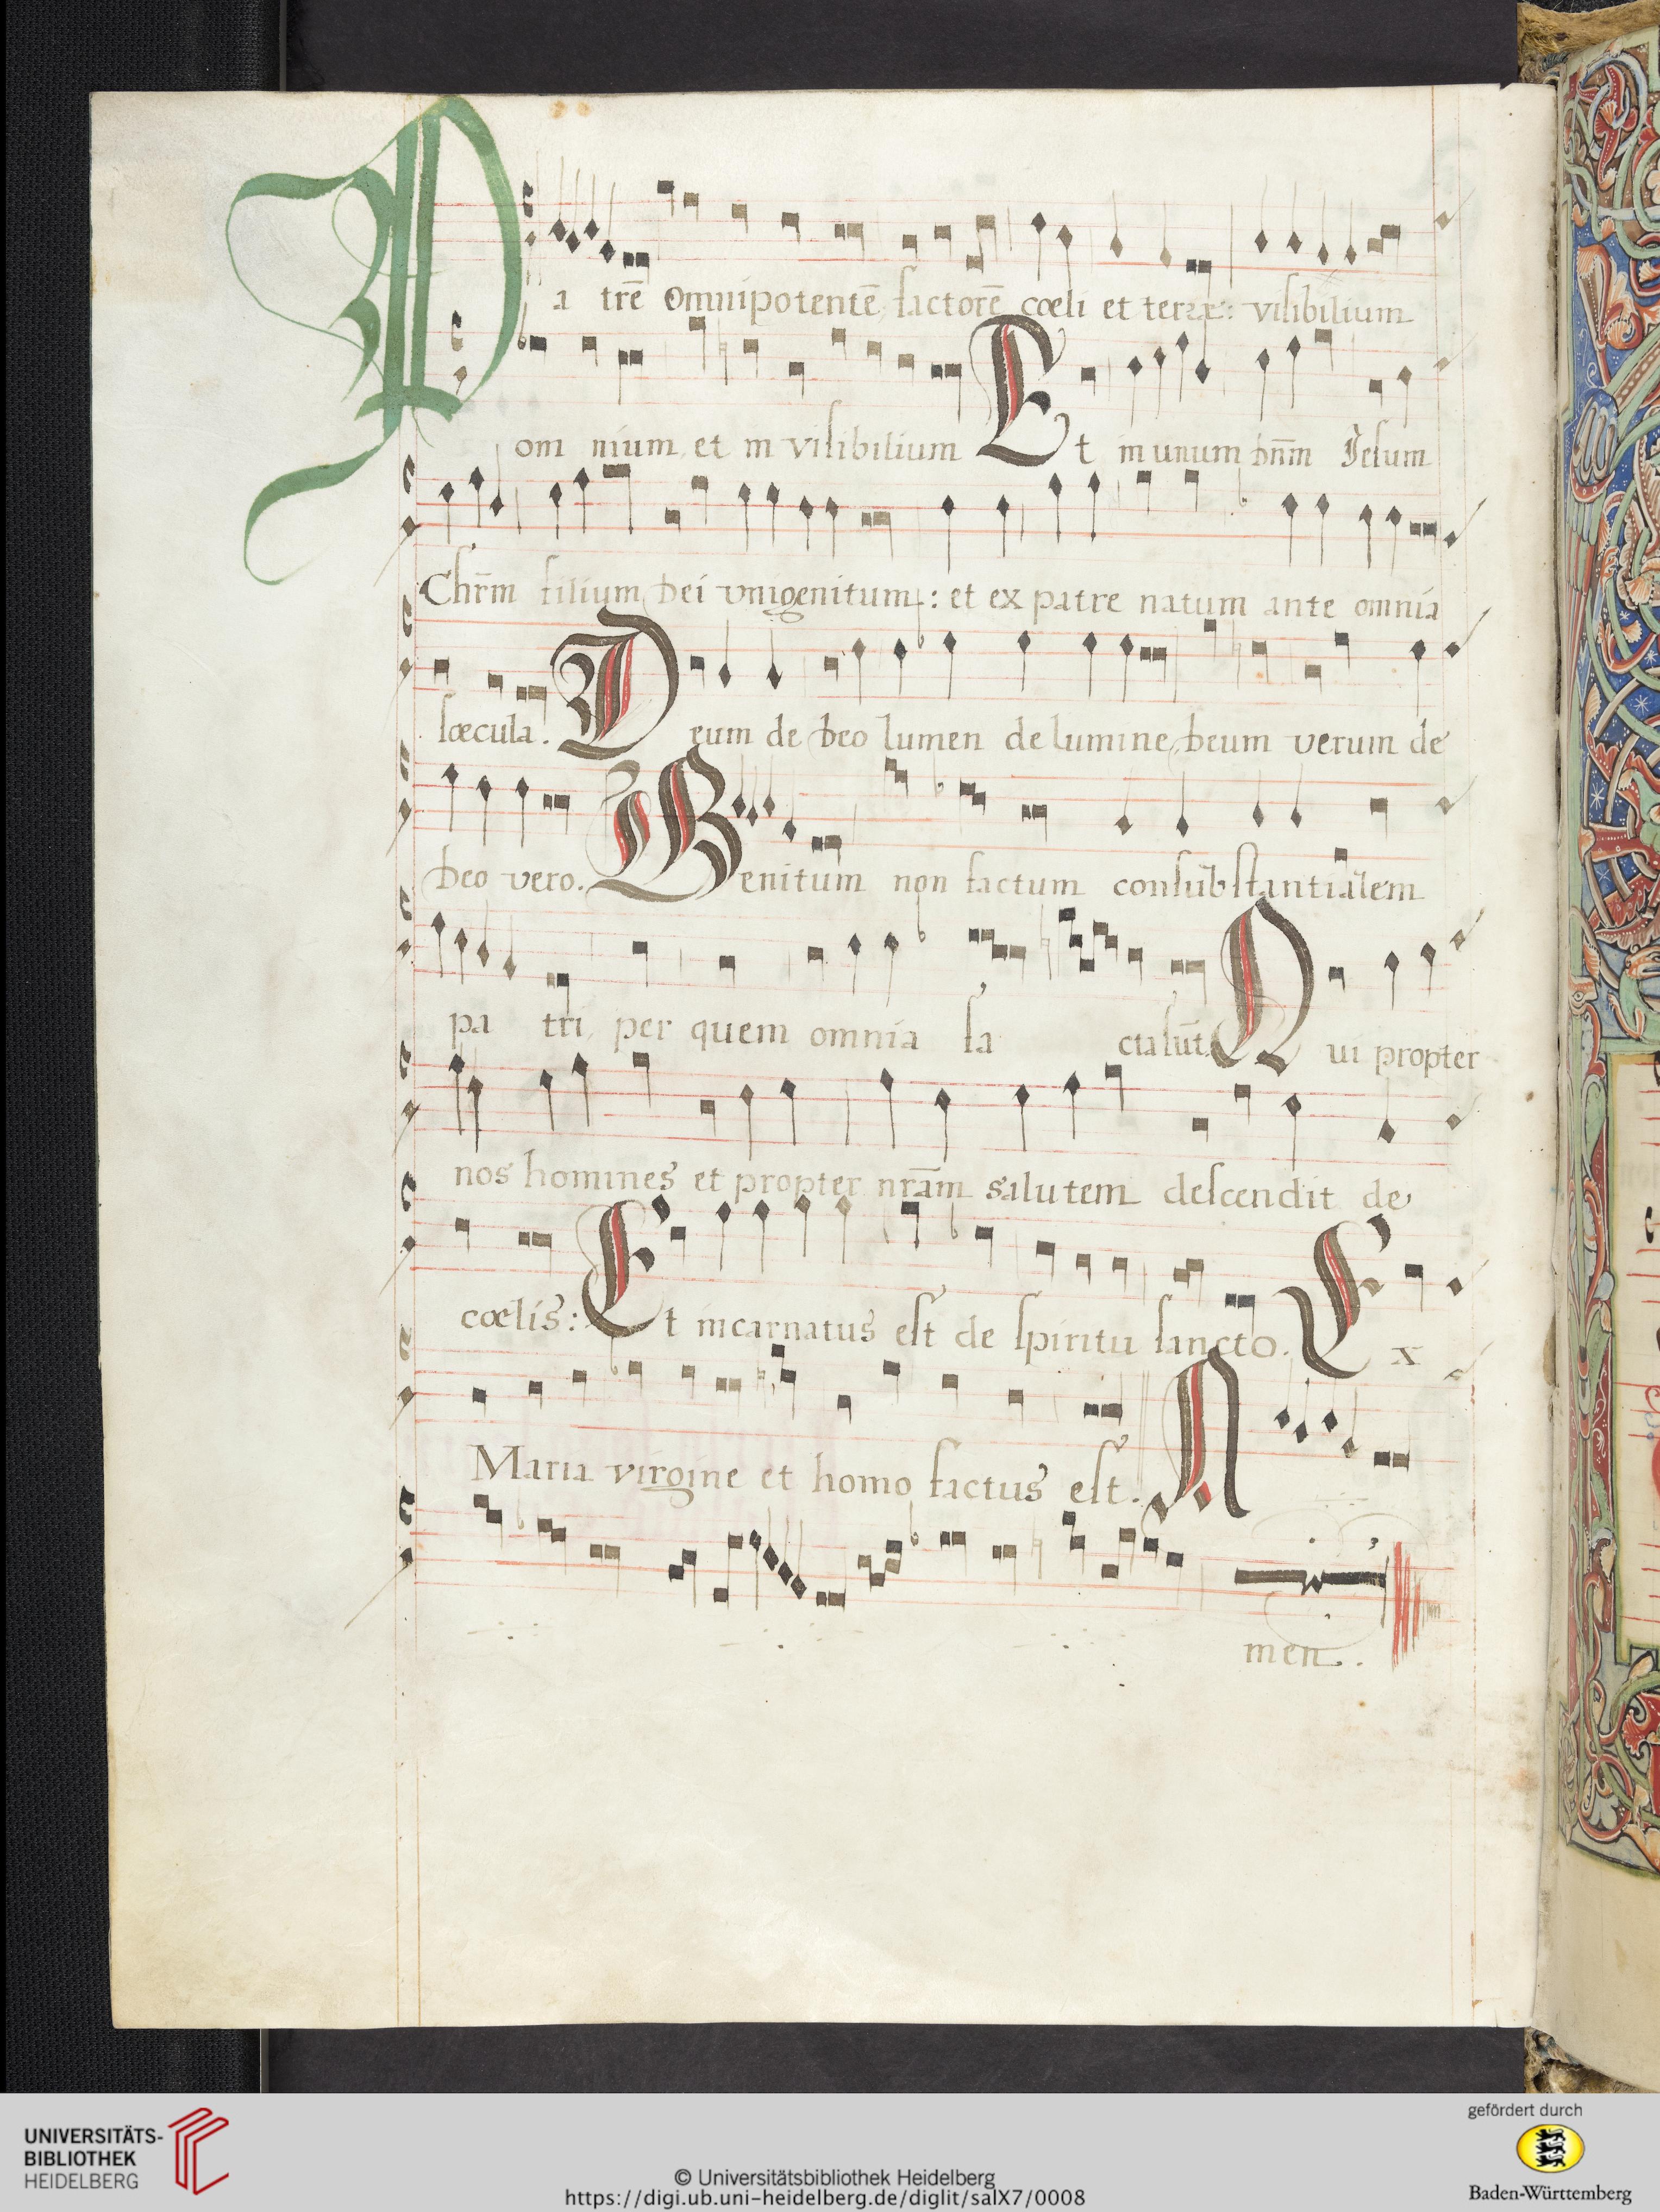 Patrē omnipotentē factorē cœli et terræ: visibilium
om nium et in visibilium Et in unum dn̄m Jesum
Chr̄m filium dei vnigenitum: et ex patre natum ante omnia
sæcula. Deum de deo lumen de lumine deum verum de
deo vero. Genitum non factum consubstantialem
pa tri, per quem omnia fa cta sūt. Qui propter
nos homines et propter nr̄am salutem descendit de
cœlis: Et incarnatus est de spiritu sancto. Ex
Maria virgine et homo factus est. A
men.
UNIVERSITÄTS-
BIBLIOTHEK
HEIDELBERG
© Universitätsbibliothek Heidelberg
https://digi.ub.uni-heidelberg.de/diglit/salX7/0008
gefördert durch
Baden-Württemberg